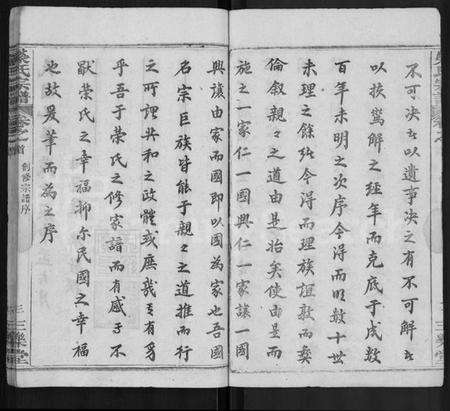 不可決者以遺事決之有不可解者
以挨駕解之經年而克底于成數
百年未明之次序今得而明數十世
未理之餘緒今得而理族誼敦而彝
倫敘親々之道由是始矣使由是而
施之一家仁一國興仁一家讓一國
興讓由家而國即以國為家也吾國
名宗巨族皆能于親々之道推而行
之所謂共和之政體或庶幾其有豸
乎吾于榮氏之修家譜而有感焉不
獨榮氏之幸福抑亦民國之幸福
也故爰筆而為之序
榮氏宗譜
卷之首
創修宗譜序
三
三樂堂